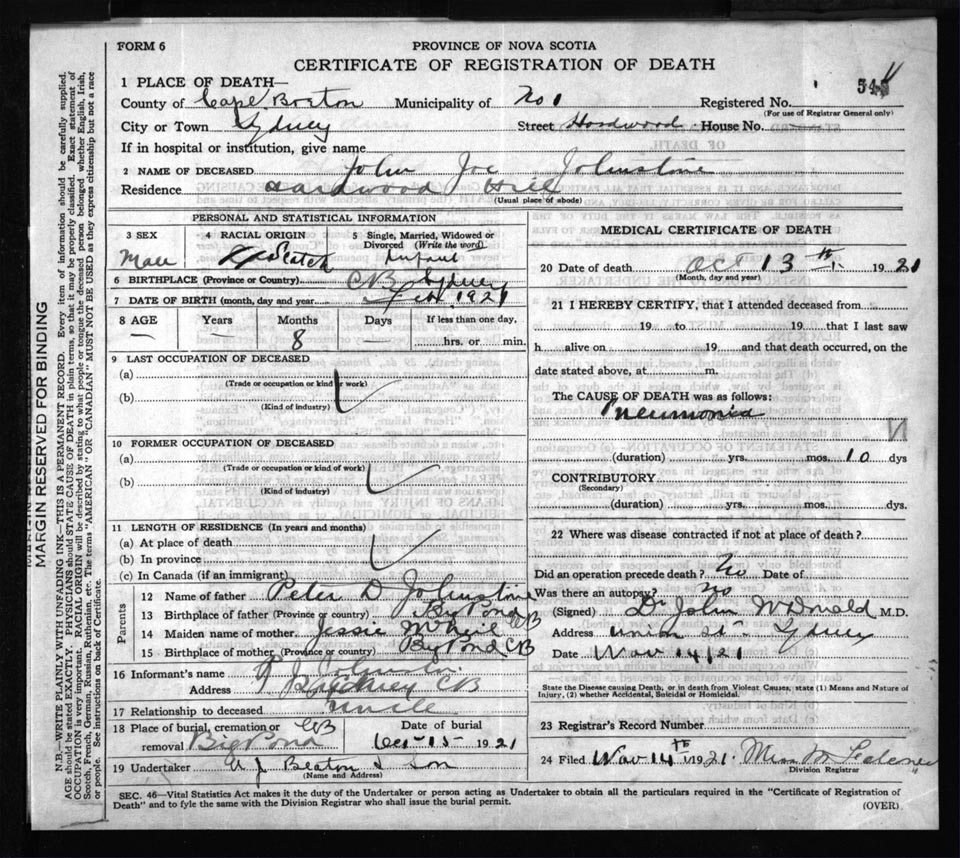 FORM 6
PROVINCE OF NOVA SCOTIA
CERTIFICATE OF REGISTRATION OF DEATH
1 PLACE OF DEATH—
County of Cape Breton Municipality of No 1 Registered No.
(For use of Registrar General only)
City or Town Sydney Street Hardwood House No.
If in hospital or institution, give name
2 NAME OF DECEASED John Joe Johnstone
Residence Hardwood Hill
(Usual place of abode)
PERSONAL AND STATISTICAL INFORMATION
3 SEX Male
4 RACIAL ORIGIN Scotch
5 Single, Married, Widowed or Divorced (Write the word) Infant
6 BIRTHPLACE (Province or Country) CB Sydney
7 DATE OF BIRTH (month, day and year) Feb 1921
8 AGE Years Months Days If less than one day,
— 8 — hrs. or min.
9 LAST OCCUPATION OF DECEASED
(a)
(Trade or occupation or kind of work)
(b)
(Kind of industry)
10 FORMER OCCUPATION OF DECEASED
(a)
(Trade or occupation or kind of work)
(b)
(Kind of industry)
11 LENGTH OF RESIDENCE (In years and months)
(a) At place of death
(b) In province
(c) In Canada (if an immigrant)
Parents
12 Name of father Peter D Johnstone
13 Birthplace of father (Province or country) Big Pond CB
14 Maiden name of mother Jessie
15 Birthplace of mother (Province or country) Big Pond CB
16 Informant's name P J Johnstone
Address Sydney CB
17 Relationship to deceased Uncle
18 Place of burial, cremation or removal Big Pond CB
Date of burial Oct 15 1921
19 Undertaker A J Beaton & Son
(Name and Address)
MEDICAL CERTIFICATE OF DEATH
20 Date of death Oct 13th 1921
(Month, day and year)
21 I HEREBY CERTIFY, that I attended deceased from
19 to 19 that I last saw
h alive on 19 and that death occurred, on the
date stated above, at m.
The CAUSE OF DEATH was as follows:
Pneumonia
(duration) yrs. mos. 10 dys
CONTRIBUTORY
(Secondary)
(duration) yrs. mos. dys.
22 Where was disease contracted if not at place of death?
Did an operation precede death? No Date of
Was there an autopsy? No
(Signed) Dr John McDonald M.D.
Address Union St Sydney
Date Nov 14/21
State the Disease causing Death, or in death from Violent Causes, state (1) Means and Nature of Injury, (2) whether Accidental, Suicidal or Homicidal.
23 Registrar's Record Number
24 Filed Nov 14th 1921. Miss M
Division Registrar
SEC. 46—Vital Statistics Act makes it the duty of the Undertaker or person acting as Undertaker to obtain all the particulars required in the "Certificate of Registration of
Death" and to fyle the same with the Division Registrar who shall issue the burial permit.
(OVER)
MARGIN RESERVED FOR BINDING
N.B.—WRITE PLAINLY WITH UNFADING INK—THIS IS A PERMANENT RECORD. Every item of information should be carefully supplied.
AGE should be stated EXACTLY. PHYSICIANS should STATE CAUSE OF DEATH in plain terms, so that it may be properly classified. Exact statement of
OCCUPATION is very important. RACIAL ORIGIN will be described by stating to what people or tongue the deceased person belonged whether English, Irish,
Scotch, French, German, Russian, Ruthenian, etc. The terms "AMERICAN" OR "CANADIAN" MUST NOT BE USED as they express citizenship but not a race
or people. See instructions on back of Certificate.